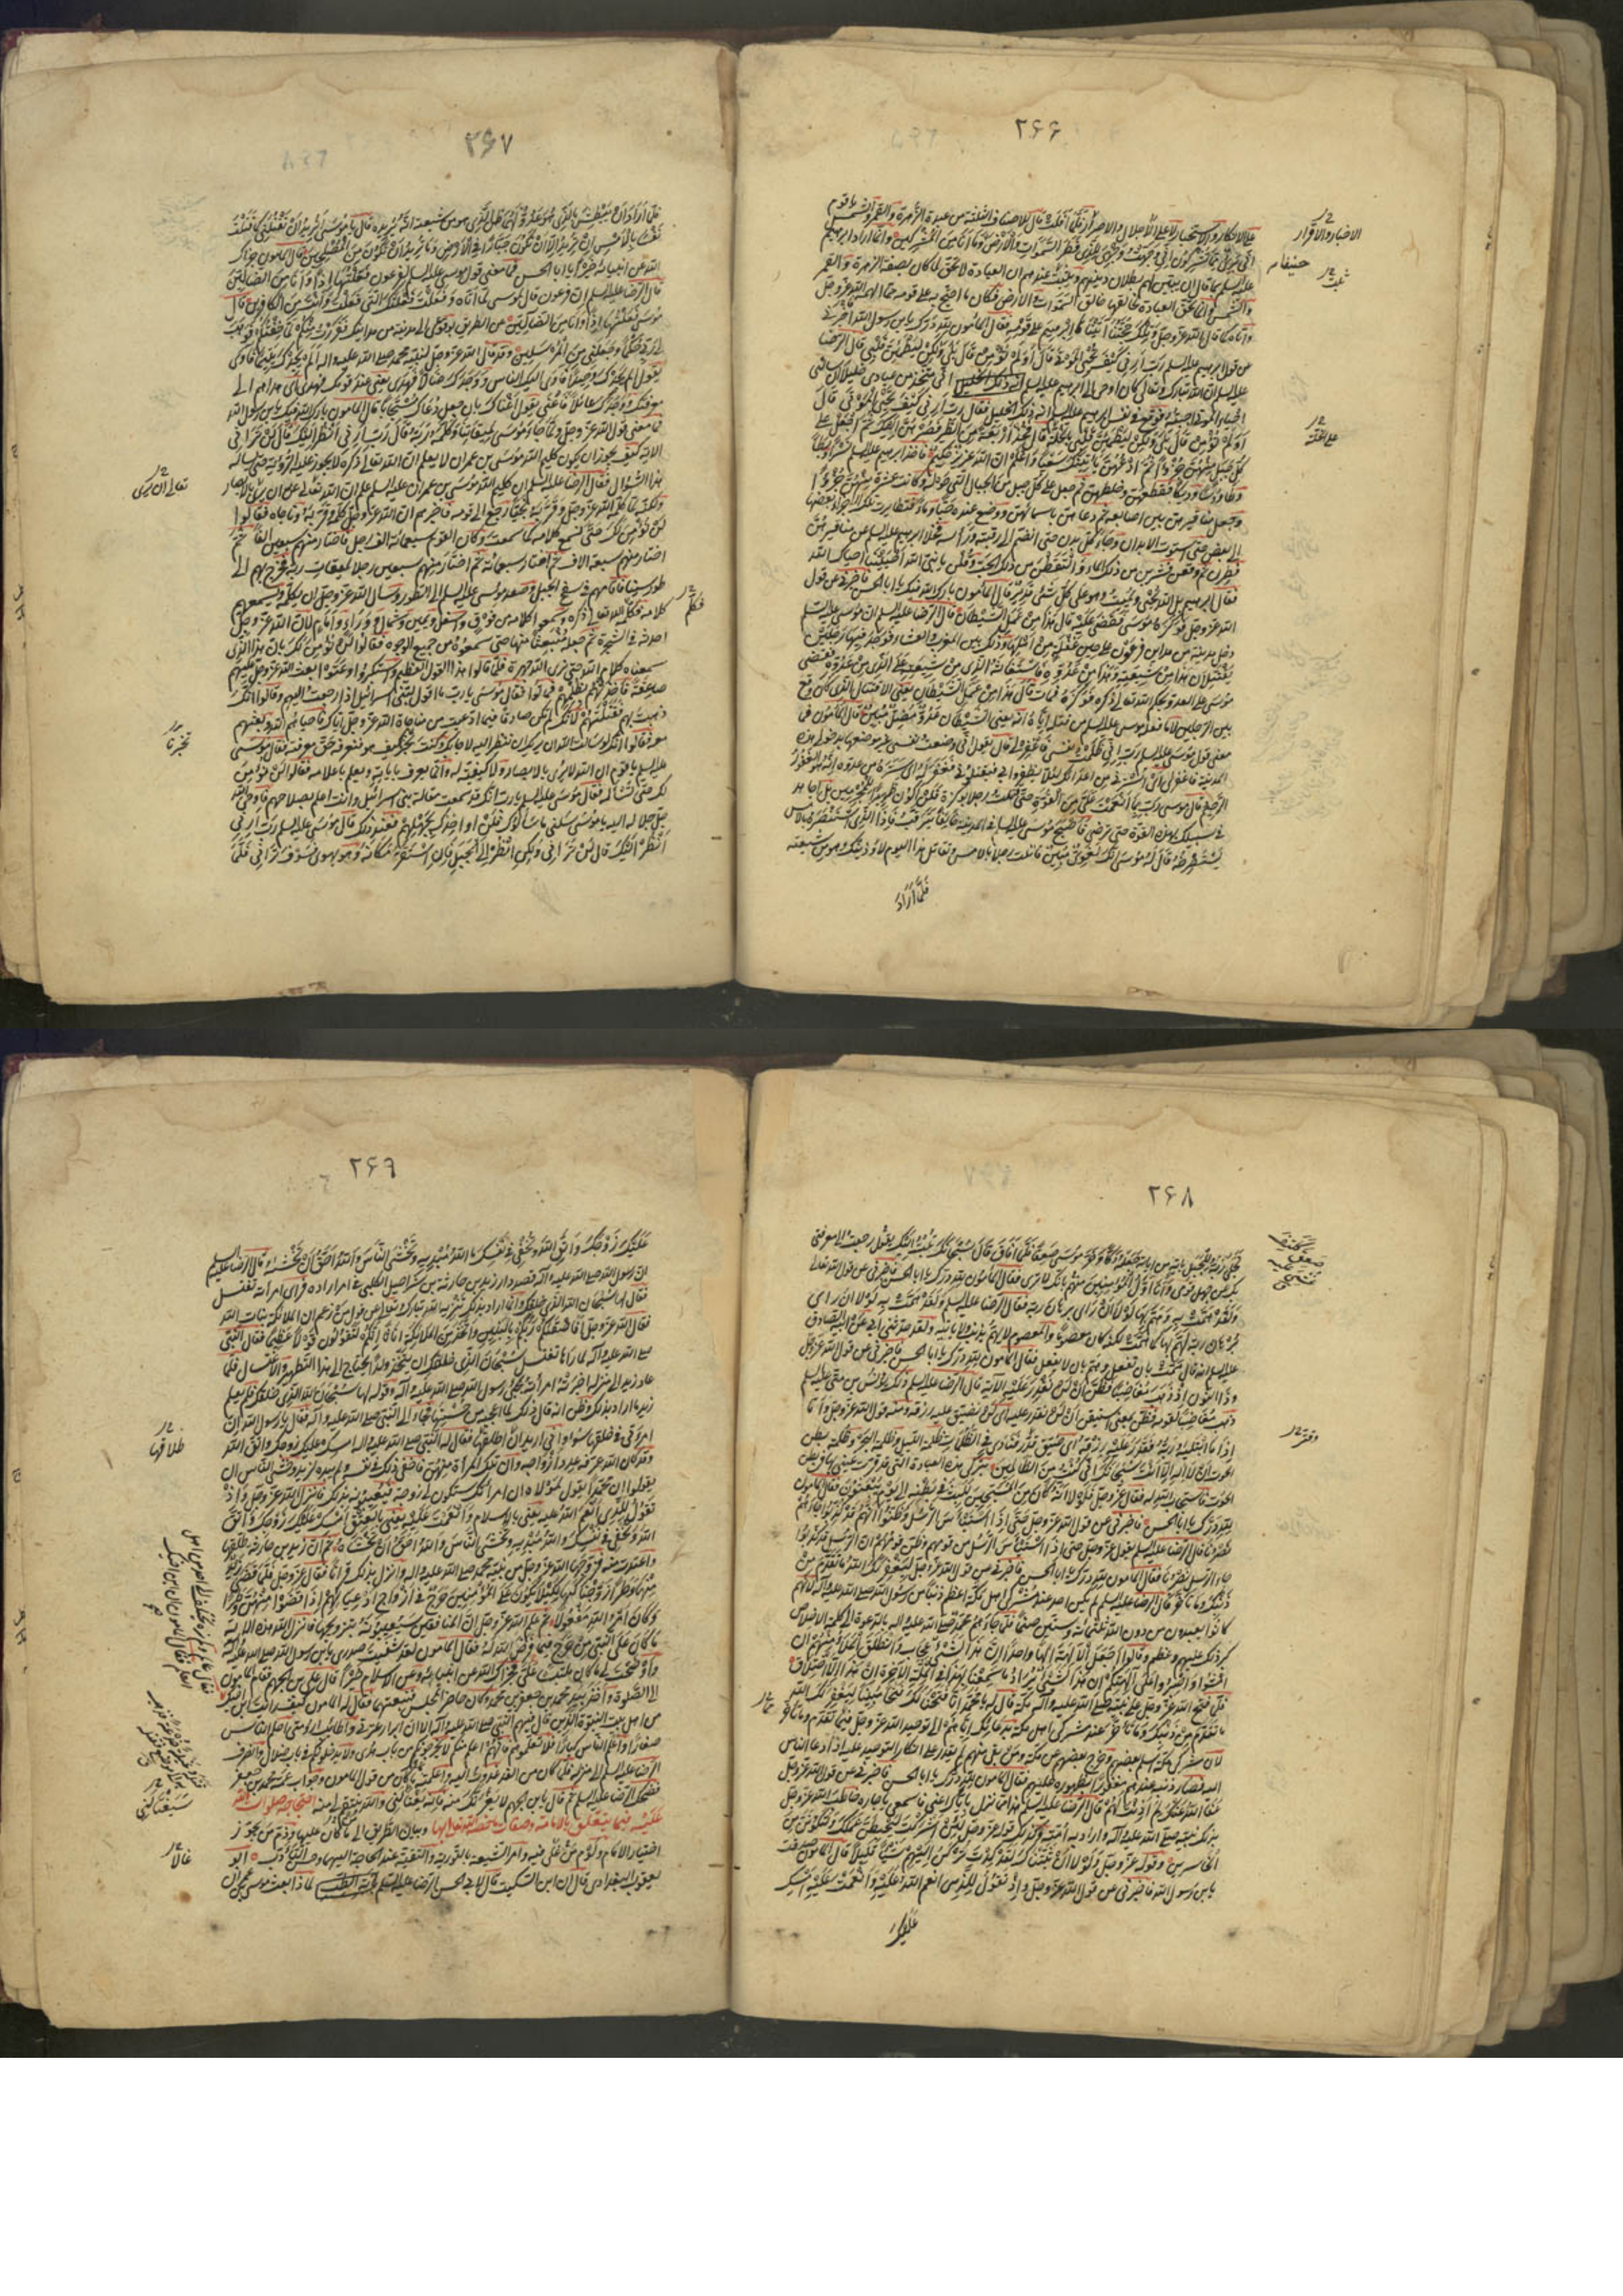 ٢۶۶
على الانكار والاستخبار لا على الاخبار والاقرار فلما افلت قال للاصناف الثلثة من عبدة الزهرة والقمر والشمس يا قوم
انى برئ مما تشركون انى وجهت وجهى للذى فطر السموات والارض وما انا من المشركين وانما اراد ابرهيم
عليه السلم بما قال ان يبين لهم بطلان دينهم ويثبت عندهم ان العبادة لا تحق لما كان بصفة الزهرة والقمر
والشمس وانما تحق العبادة لخالقها خالق السموات والارض فكان ما احتج به على قومه مما الهمه الله عز وجل
واتاه كما قال الله عز وجل وتلك حجتنا آتيناها ابرهيم على قومه فقال المامون لله درك يا بن رسول الله فاخبرنى
عن قول ابرهيم عليه السلم رب ارنى كيف تحيى الموتى قال اولم تؤمن قال بلى ولكن ليطمئن قلبى قال الرضا
عليه السلم ان الله تبارك وتعالى كان اوحى الى ابرهيم عليه السلم انى متخذ من عبادى خليلا ان سالنى
احياء الموتى اجبته فوقع فى نفس ابرهيم عليه السلم انه ذلك الخليل فقال رب ارنى كيف تحيى الموتى قال
اولم تؤمن قال بلى ولكن ليطمئن قلبى بالخلة قال فخذ اربعة من الطير فصرهن اليك ثم اجعل على
كل جبل منهن جزءا ثم ادعهن ياتينك سعيا واعلم ان الله عزيز حكيم فاخذ ابرهيم عليه السلم نسرا وبطا
وطاوسا وديكا فقطعهن وخلطهن ثم جعل على كل جبل من الجبال التى حوله وكانت عشرة منهن جزءا
وجعل مناقيرهن بين اصابعه ثم دعاهن باسمائهن ووضع عنده حبا وماء فتطايرت تلك الاجزاء بعضها
الى بعض حتى استوت الابدان وجاء كل بدن حتى انضم الى رقبته وراسه فخلا ابرهيم عليه السلم عن مناقيرهن
فطرن ثم وقعن فشربن من ذلك الماء والتقطن من ذلك الحب وقلن يا نبى الله احييتنا احياك الله
فقال ابرهيم بل الله يحيى ويميت وهو على كل شئ قدير قال المامون بارك الله فيك يا ابا الحسن فاخبرنى عن قول
الله عز وجل فوكزه موسى فقضى عليه قال هذا من عمل الشيطان قال الرضا عليه السلم ان موسى عليه السلم
دخل مدينة من مداين فرعون على حين غفلة من اهلها وذلك بين المغرب والعشاء فوجد فيها رجلين
يقتتلان هذا من شيعته وهذا من عدوه فاستغاثه الذى من شيعته على الذى من عدوه فقضى
موسى على العدو بحكم الله تعالى ذكره فوكزه فمات قال هذا من عمل الشيطان يعنى الاقتتال الذى كان وقع
بين الرجلين لا ما فعله موسى عليه السلم من قتله اياه انه يعنى الشيطان عدو مضل مبين قال المامون فما
معنى قول موسى عليه السلم رب انى ظلمت نفسى فاغفر لى قال يقول انى وضعت نفسى غير موضعها بدخولى هذه
المدينة فاغفر لى اى استرنى من اعدائك لئلا يظفروا بى فيقتلونى فغفر له اى ستره من عدوه انه هو الغفور
الرحيم قال موسى رب بما انعمت على من القوة حتى قتلت رجلا بوكزة فلن اكون ظهيرا للمجرمين بل اجاهد
فى سبيلك بهذه القوة حتى ترضى فاصبح موسى عليه السلم فى المدينة خائفا يترقب فاذا الذى استنصره بالامس
يستصرخه قال له موسى انك لغوى مبين قاتلت رجلا بالامس وتقاتل هذا اليوم لاوذينك وهو من شيعته
فلما اراد
الاخبار والاقرار
حنيفا
يثبت
على الخلة
٢۶٧
فلما اراد ان يبطش بالذى هو عدو لهما ظن الذى هو من شيعته انه يريده قال يا موسى اتريد ان تقتلنى كما قتلت
نفسا بالامس ان تريد الا ان تكون جبارا فى الارض وما تريد ان تكون من المصلحين قال المامون جزاك
الله عن انبيائه خيرا يا ابا الحسن فما معنى قول موسى عليه السلم لفرعون فعلتها اذا وانا من الضالين
قال الرضا عليه السلم ان فرعون قال لموسى لما اتاه وفعلت فعلتك التى فعلت وانت من الكافرين قال
موسى فعلتها اذا وانا من الضالين عن الطريق بوقوعى الى مدينة من مداينك ففررت منكم لما خفتكم فوهب
لى ربى حكما وجعلنى من المرسلين وقد قال الله عز وجل لنبيه محمد صلى الله عليه واله الم يجدك يتيما فاوى
يقول الم يجدك وحيدا فاوى اليك الناس ووجدك ضالا فهدى يعنى عند قومك فهدى اى هداهم الى
معرفتك ووجدك عائلا فاغنى يقول اغناك بان جعل دعاك مستجابا قال المامون بارك الله فيك يا بن رسول الله
فما معنى قول الله عز وجل ولما جاء موسى لميقاتنا وكلمه ربه قال رب ارنى انظر اليك قال لن ترانى
الاية كيف يجوز ان يكون كليم الله موسى بن عمران لا يعلم ان الله تعالى ذكره لا يجوز عليه الرؤية حتى يساله
هذا السؤال فقال الرضا عليه السلم ان كليم الله موسى بن عمران عليه السلم علم ان الله تعالى عن ان يرى بالابصار
ولكنه لما كلمه الله عز وجل وقربه نجيا رجع الى قومه فاخبرهم ان الله عز وجل كلمه وقربه وناجاه فقالوا
لن نؤمن لك حتى نسمع كلامه كما سمعت وكان القوم سبعمائة الف رجل فاختار منهم سبعين الفا ثم
اختار منهم سبعة الاف ثم اختار سبعمائة ثم اختار منهم سبعين رجلا لميقات ربه فخرج بهم الى
طور سينا فاقامهم فى سفح الجبل وصعد موسى عليه السلم الى الطور وسال الله عز وجل ان يكلمه ويسمعهم
كلامه فكلمه الله تعالى ذكره وسمعوا كلامه من فوق واسفل ويمين وشمال ووراء وامام لان الله عز وجل
احدثه فى الشجرة ثم جعله منبعثا منها حتى سمعوه من جميع الوجوه فقالوا لن نؤمن لك بان هذا الذى
سمعناه كلام الله حتى نرى الله جهرة فلما قالوا هذا القول العظيم واستكبروا وعتوا بعث الله عز وجل عليهم
صاعقة فاخذتهم بظلمهم فماتوا فقال موسى يا رب ما اقول لبنى اسرائيل اذا رجعت اليهم وقالوا انك
ذهبت بهم فقتلتهم لانك لم تكن صادقا فيما ادعيت من مناجاة الله عز وجل اياك فاحياهم الله وبعثهم
معه فقالوا انك لو سالت الله ان يريك ان تنظر اليه لاجابك وكنت تخبر كيف هو فنعرفه حق معرفته فقال موسى
عليه السلم يا قوم ان الله لا يرى بالابصار ولا كيفية له وانما يعرف باياته ويعلم باعلامه فقالوا لن نؤمن
لك حتى تساله فقال موسى عليه السلم يا رب انك قد سمعت مقالة بنى اسرائيل وانت اعلم بصلاحهم فاوحى الله
جل جلاله اليه يا موسى سلنى ما سالوك فلن اواخذك بجهلهم فعند ذلك قال موسى عليه السلم رب ارنى
انظر اليك قال لن ترانى ولكن انظر الى الجبل فان استقر مكانه وهو يهوى فسوف ترانى فلما
تعالى ان يرى
فكلم
تخبرنا
٢۶٨
تجلى ربه للجبل باية من اياته جعله دكا وخر موسى صعقا فلما افاق قال سبحانك تبت اليك يقول رجعت الى معرفتى
بك عن جهل قومى وانا اول المؤمنين منهم بانك لا ترى فقال المامون لله درك يا ابا الحسن فاخبرنى عن قول الله تعالى
ولقد همت به وهم بها لولا ان راى برهان ربه فقال الرضا عليه السلم ولقد همت به لولا ان راى
برهان ربه لهم بها كما همت لكنه كان معصوما والمعصوم لا يهم بذنب ولا ياتيه ولقد حدثنى ابى عن ابيه الصادق
عليه السلم انه قال همت بان تفعل وهم بان لا يفعل فقال المامون لله درك يا ابا الحسن فاخبرنى عن قول الله عز وجل
وذا النون اذ ذهب مغاضبا فظن ان لن نقدر عليه الاية قال الرضا عليه السلم ذلك يونس بن متى عليه السلم
ذهب مغاضبا لقومه فظن بمعنى استيقن ان لن نقدر عليه اى لن نضيق عليه رزقه ومنه قول الله عز وجل واما
اذا ما ابتليه ربه فقدر عليه رزقه اى ضيق وقتر فنادى فى الظلمات ظلمة الليل وظلمة البحر وظلمة بطن
الحوت ان لا اله الا انت سبحانك انى كنت من الظالمين بتركى هذه العبادة التى قد قرت عينى بها فى بطن
الحوت فاستجاب الله له فقال عز وجل فلولا انه كان من المسبحين للبث فى بطنه الى يوم يبعثون فقال المامون
لله درك يا ابا الحسن فاخبرنى عن قول الله عز وجل حتى اذا استيأس الرسل وظنوا انهم قد كذبوا جاءهم
نصرنا قال الرضا عليه السلم يقول عز وجل حتى اذا استيأس الرسل من قومهم وظن قومهم ان الرسل قد كذبوا
جاء الرسل نصرنا فقال المامون لله درك يا ابا الحسن فاخبرنى عن قول الله عز وجل ليغفر لك الله ما تقدم من
ذنبك وما تاخر قال الرضا عليه السلم لم يكن احد عند مشركى اهل مكة اعظم ذنبا من رسول الله صلى الله عليه واله لانهم
كانوا يعبدون من دون الله ثلثمائة وستين صنما فلما جاءهم محمد صلى الله عليه واله بالدعوة الى كلمة الاخلاص
كبر ذلك عليهم وعظم وقالوا اجعل الالهة الها واحدا ان هذا لشئ عجاب وانطلق الملأ منهم ان
امشوا واصبروا على الهتكم ان هذا لشئ يراد ما سمعنا بهذا فى الملة الاخرة ان هذا الا اختلاق
فلما فتح الله عز وجل على نبيه صلى الله عليه واله مكة قال له يا محمد انا فتحنا لك فتحا مبينا ليغفر لك الله
ما تقدم من ذنبك وما تاخر عند مشركى اهل مكة بدعائك اياهم الى توحيد الله عز وجل فيما تقدم وما تاخر
لان مشركى مكة اسلم بعضهم وخرج بعضهم عن مكة ومن بقى منهم لم يقدر على انكار التوحيد عليه اذ دعا الناس
اليه فصار ذنبه عندهم مغفورا بظهوره عليهم فقال المامون لله درك يا ابا الحسن فاخبرنى عن قول الله عز وجل
عفا الله عنك لم اذنت لهم قال الرضا عليه السلم هذا مما نزل باياك اعنى فاسمعى يا جارة خاطب الله عز وجل
بذلك نبيه صلى الله عليه واله واراد به امته وكذلك قوله عز وجل لئن اشركت ليحبطن عملك ولتكونن من
الخاسرين وقوله عز وجل ولولا ان ثبتناك لقد كدت تركن اليهم شيئا قليلا قال المامون صدقت
يا بن رسول الله فاخبرنى عن قول الله عز وجل واذ تقول للذى انعم الله عليه وانعمت عليه امسك
عليك
وقتر
٢۶٩
عليك زوجك واتق الله وتخفى فى نفسك ما الله مبديه وتخشى الناس والله احق ان تخشاه قال الرضا عليه السلم
ان رسول الله صلى الله عليه واله قصد دار زيد بن حارثة بن شراحيل الكلبى فى امر اراده فراى امراته تغتسل
فقال لها سبحان الله الذى خلقك وانما اراد بذلك تنزيه الله تبارك وتعالى عن قول من زعم ان الملائكة بنات الله
فقال الله عز وجل افاصفاكم ربكم بالبنين واتخذ من الملائكة اناثا انكم لتقولون قولا عظيما فقال النبى
صلى الله عليه واله لما راها تغتسل سبحان الذى خلقك ان يتخذ ولدا يحتاج الى هذا التطهر والاغتسال فلما
عاد زيد الى منزله اخبرته امراته بمجئ رسول الله صلى الله عليه واله وقوله لها سبحان الله الذى خلقك فلم يعلم
زيد ما اراد بذلك وظن انه قال ذلك لما اعجبه من حسنها فجاء الى النبى صلى الله عليه واله فقال يا رسول الله ان
امرأتى فى خلقها سوء وانى اريد ان اطلقها فقال له النبى صلى الله عليه واله امسك عليك زوجك واتق الله
وقد كان الله عرفه عدد ازواجه وان تلك المراة منهن فاخفى ذلك فى نفسه ولم يبده لزيد وخشى الناس ان
يقولوا ان محمدا يقول لمولاه ان امراتك ستكون لى زوجة فيعيبونه بذلك فانزل الله عز وجل واذ
تقول للذى انعم الله عليه يعنى بالاسلام وانعمت عليه يعنى بالعتق امسك عليك زوجك واتق
الله وتخفى فى نفسك ما الله مبديه وتخشى الناس والله احق ان تخشاه ثم ان زيد بن حارثة طلقها
واعتدت منه فزوجها الله عز وجل من نبيه محمد صلى الله عليه واله وانزل بذلك قرانا فقال عز وجل فلما قضى زيد
منها وطرا زوجناكها لكيلا يكون على المؤمنين حرج فى ازواج ادعيائهم اذا قضوا منهن وطرا
وكان امر الله مفعولا ثم علم الله عز وجل ان المنافقين سيعيبونه بتزويجها فانزل الله هذه الاية
ما كان على النبى من حرج فيما فرض الله له فقال المامون لقد شفيت صدرى يا بن رسول الله صلى الله عليه واله
واوضحت لى ما كان ملتبسا على فجزاك الله عن انبيائه وعن الاسلام خيرا قال على بن الجهم فقام المامون
الى الصلوة واخذ بيد محمد بن جعفر بن محمد وكان حاضر المجلس وتبعتهما فقال له المامون كيف رايت ابن اخيك
من اهل بيت النبوة الذين قال فيهم النبى صلى الله عليه واله الا ان ابرار عترتى واطائب ارومتى احلم الناس
صغارا واعلم الناس كبارا فلا تعلموهم فانهم اعلم منكم لا يخرجونكم من باب هدى ولا يدخلونكم فى باب ضلال وانصرف
الرضا عليه السلم الى منزله فلما كان من الغد غدوت اليه واعلمته ما كان من قول المامون وجواب عمه محمد بن جعفر
فضحك الرضا عليه السلم ثم قال يا بن الجهم لا يغرنك ما سمعته منه فانه سيغتالنى والله ينتقم لى منه احتجاجه صلوات الله
عليه فيما يتعلق بالامامة وصفات من خصه الله تعالى بها وبيان الطريق الى من كان عليها وذم من يجوز
اختيار الامام ولؤم من غلا فيه وامر الشيعة بالتورية والتقية عند الحاجة اليهما وحسن التادب ابو
يعقوب البغدادى قال ان ابن السكيت قال لابى الحسن الرضا عليه السلم لماذا بعث موسى بن عمران
طلاقها
سيغتالنى
غالا